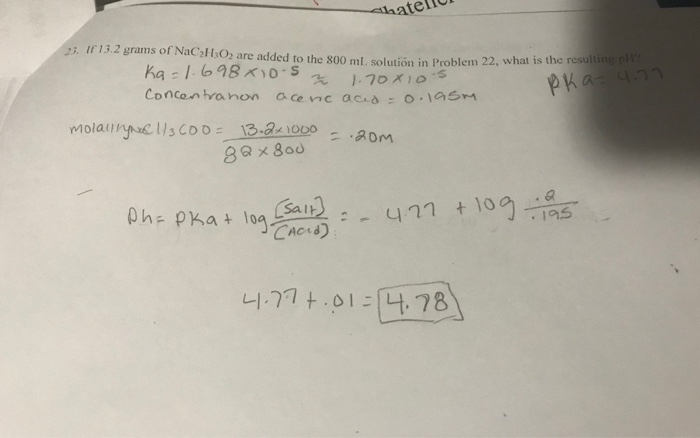 23. If 13.2 grams of NaC₂H₃O₂ are added to the 800 mL solution in Problem 22, what is the resulting pH?
Ka = 1.698 × 10⁻⁵ ≈ 1.70 × 10⁻⁵
pKa = 4.77
Concentration acetic acid = 0.195M
= 13.2 × 1000 / 82 × 800 = .20M
Ph = PKa + log [Salt] / (Acid) = - 4.77 + log .2 / .195
4.77 + .01 = 4.78